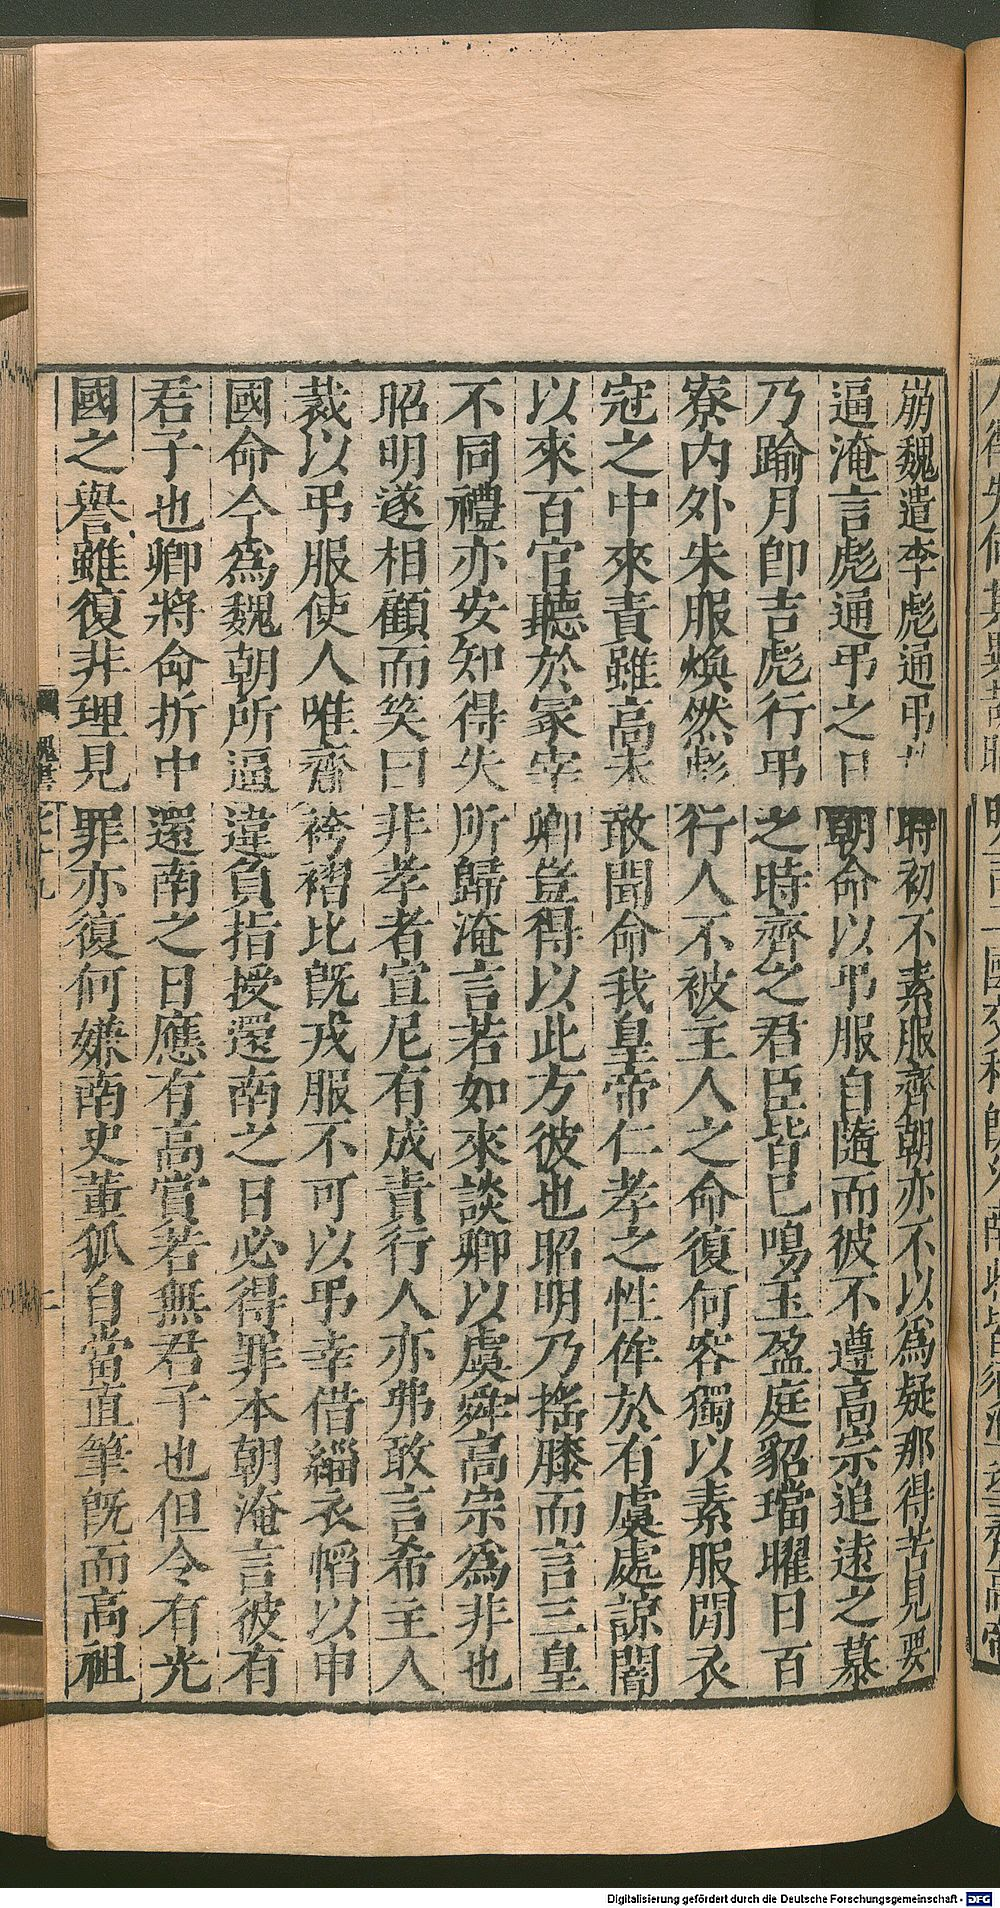 崩魏遣李彪通弔於時初不素服齊朝亦不以為疑那得苦見要
逼淹言彪通弔之日朝命以弔服自隨而彼不遵高宗追遠之慕
乃踰月即吉彪行弔之時齊之君臣皆已鳴玉盈庭貂璫曜日百
寮內外朱服煥然彪行人不被主人之命復何容獨以素服間衣
冠之中來責雖高未敢聞命我皇帝仁孝之性侔於有虞處諒闇
以來百官聽於冢宰卿豈得以此方彼也昭明乃搖膝而言三皇
不同禮亦安知得失所歸淹言若如來談卿以虞舜高宗為非也
昭明遂相顧而笑曰非孝者宣尼有成責行人亦弗敢言希主人
裁以弔服使人唯齎袴褶比既戎服不可以弔幸借緇衣㡊以申
國命今為魏朝所逼違負指授還南之日必得罪本朝淹言彼有
君子也卿將命折中還南之日應有高賞若無君子也但令有光
國之譽雖復非理見罪亦復何嫌南史董狐自當直筆既而高祖
魏書
Digitalisierung gefördert durch die Deutsche Forschungsgemeinschaft - DFG